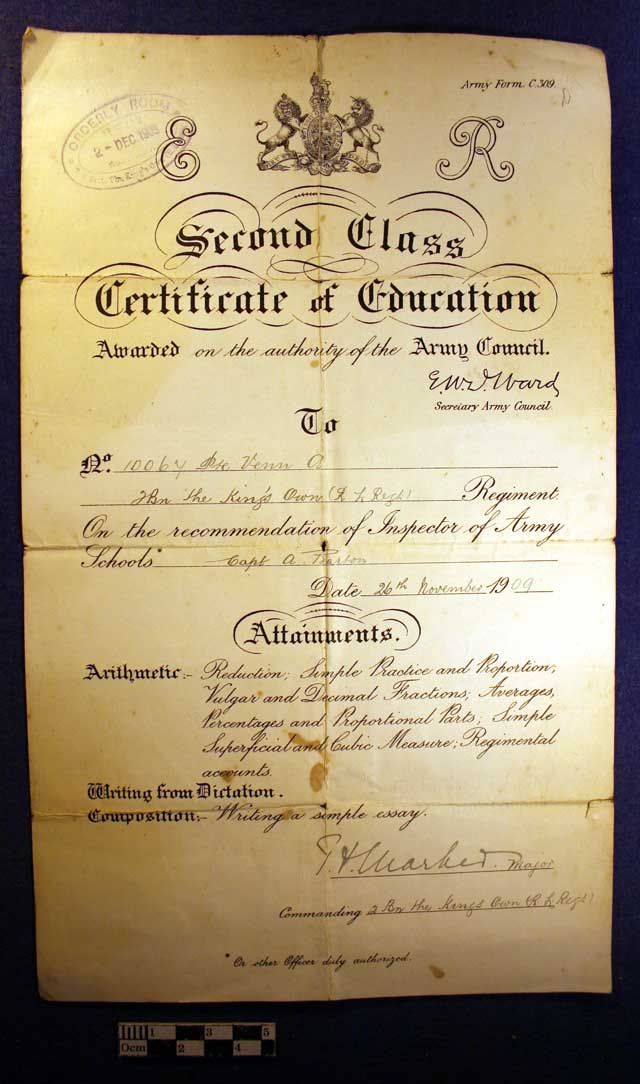 Army Form. C.309.
ORDERLY ROOM
2 - DEC 1909
E R
Second Class
Certificate of Education
Awarded on the authority of the Army Council.
E.W.D. Ward
Secretary Army Council.
To
No. 10067 Pte. Venn A
2 Bn The King's Own (R L Regt) Regiment
On the recommendation of Inspector of Army
Schools* Capt A.
Date 26th November 1909
Attainments.
Arithmetic:- Reduction; Simple Practice and Proportion;
Vulgar and Decimal Fractions; Averages,
Percentages and Proportional Parts; Simple
Superficial and Cubic Measure; Regimental
accounts.
Writing from Dictation.
Composition:- Writing a simple essay.
Major
Commanding 2 Bn The King's Own R L Regt
* Or other Officer duly authorized.
1 3 5
0cm 2 4